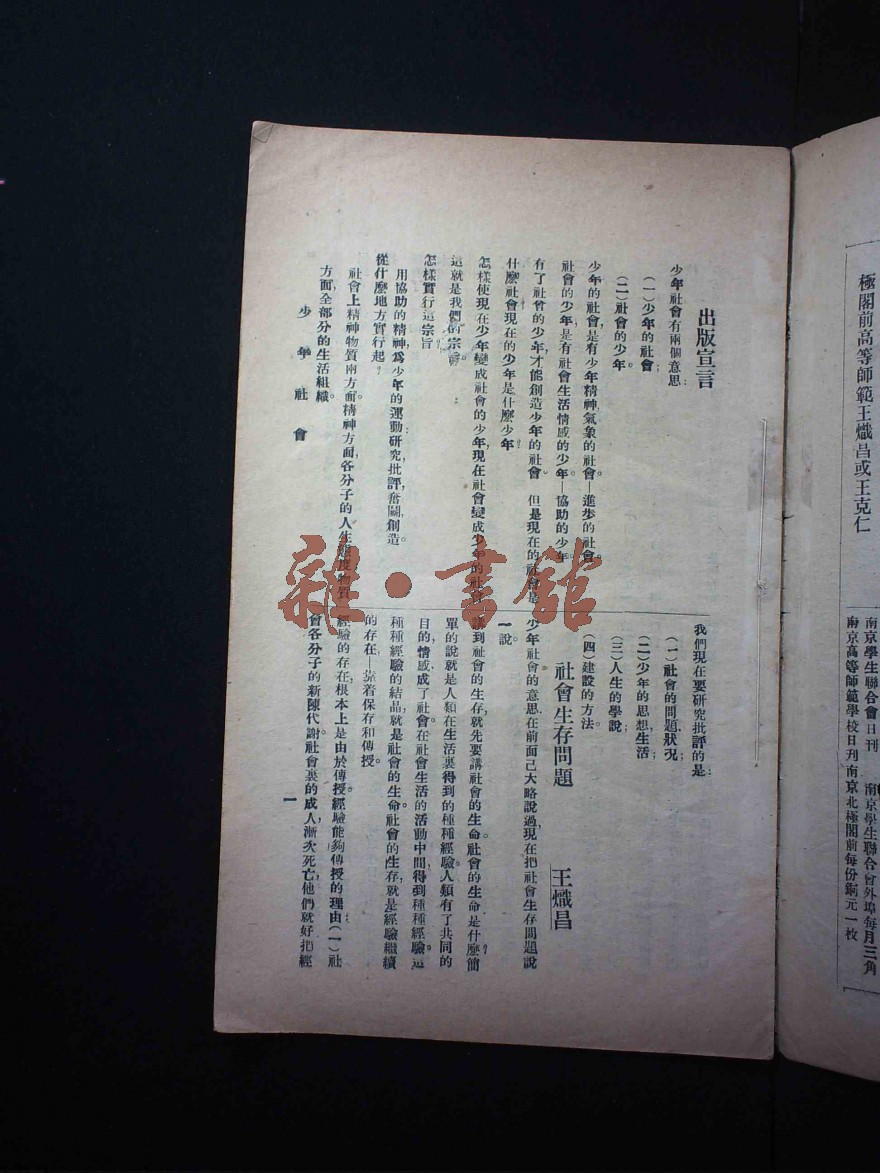 出版宣言
少年社會有兩個意思：
（一）少年的社會；
（二）社會的少年。
少年的社會，是有少年精神氣象的社會—進步的社會。
社會的少年，是有社會生活情感的少年—協助的少年。
有了社會的少年，才能創造少年的社會。但是現在的社會是
什麼社會？現在的少年是什麼少年？
怎樣使現在少年變成社會的少年，現在社會變成少年的社會，
這就是我們的宗旨。
怎樣實行這宗旨
用協助的精神，爲少年的運動：研究，批評，奮鬬，創造。
從什麼地方實行起？
社會上精神物質兩方面。精神方面，各分子的人生態度；物質
方面，全部分的生活組織。
少年社會
我們現在要研究批評的是：
（一）社會的問題，狀況；
（二）少年的思想，生活；
（三）人生的學說；
（四）建設的方法。
社會生存問題
王熾昌
少年社會的意思，在前面已大略說過，現在把社會生存問題說
一說。
講到社會的生存，就先要講社會的生命。社會的生命是什麼？簡
單的說，就是人類在生活裏得到的種種經驗。人類有了共同的
目的，情感，成了社會。在社會生活的活動中間，得到種種經驗。這
種種經驗的結晶，就是社會的生命。社會的生存，就是經驗繼續
的存在—靠着保存和傳授。
經驗的存在，根本上是由於傳授。經驗能夠傳授的理由：（一）社
會各分子的新陳代謝。社會裏的成人，漸次死亡，他們就好把經
一
雜·書館
極閣前高等師範王熾昌或王克仁
南京學生聯合會日刊 南京學生聯合會外埠每月三角
南京高等師範學校日刊 南京北極閣前每份銅元一枚